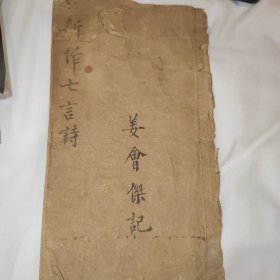 新作七言詩
姜會傑記